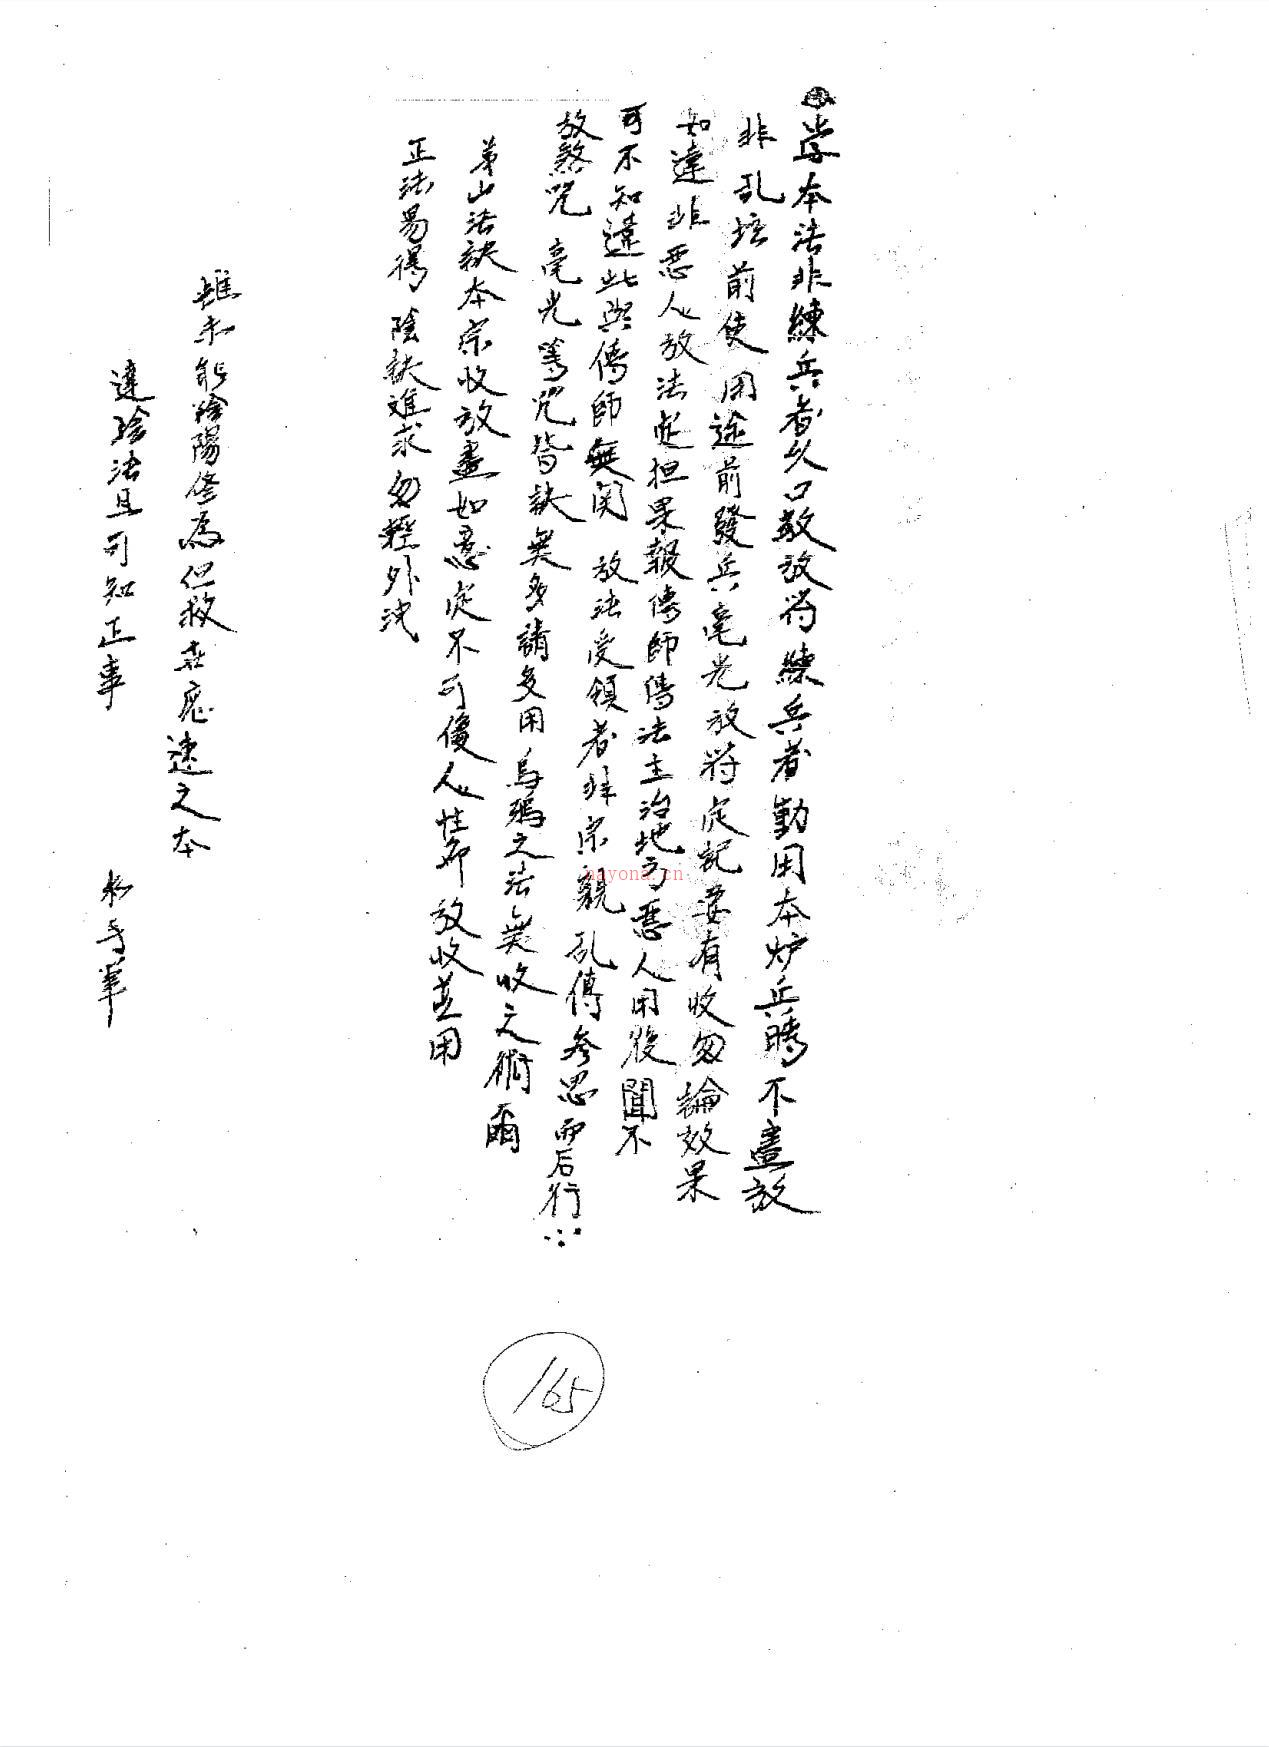 学本法非練兵者久口敬放符練兵者勤用本炉兵時不盡放
非乱坛前使用途前發兵毫光放將定記要有收勿論效果
如違非惡人放法定担果報傳師傳法主治地方惡人用後聞不
可不知違此與傳師無関 放法受領者非宗親乱傳參思而后行
放煞咒 毫光等咒皆訣無多請多用烏鴉之法無收之術爾
茅山法訣本宗收放盡如意定不可傻人性命放收並用
正法易得 陰訣進求勿輕外洩
雖未能陰陽修為但救世應速之本
達陰法且可知正事
手筆
165
nayona.cn